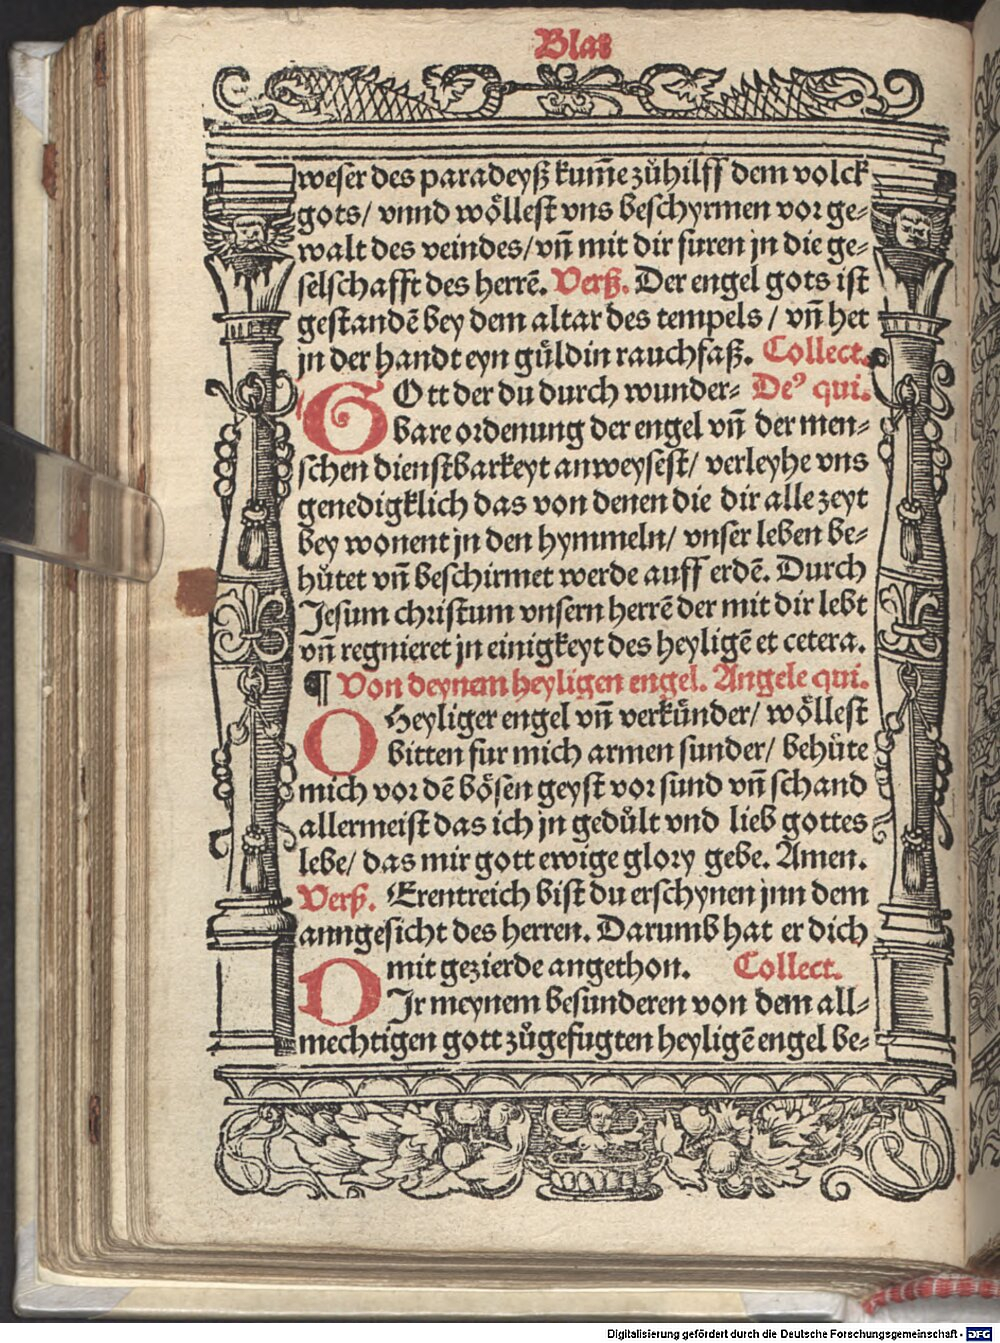 Blat
weser des paradeyß kum̄e zůhilff dem volck
gots/ vnnd wöllest vns beschyrmen vor ge-
walt des veindes/ vn̄ mit dir furen jn die ge-
selschafft des herrē. Verß. Der engel gots ist
gestandē bey dem altar des tempels / vn̄ het
jn der handt eyn güldin rauchfaß. Collect.
GOtt der du durch wunder- Deꝰ qui.
bare ordenung der engel vn̄ der men-
schen dienstbarkeyt anweysest/ verleyhe vns
genedigklich das von denen die dir alle zeyt
bey wonent jn den hymmeln/ vnser leben be-
hůtet vn̄ beschirmet werde auff erdē. Durch
Jesum christum vnsern herrē der mit dir lebt
vn̄ regnieret jn einigkeyt des heyligē et cetera.
¶ Von deynem heyligen engel. Angele qui.
O Heyliger engel vn̄ verkünder/ wöllest
bitten fur mich armen sunder/ behůte
mich vor dē bösen geyst vor sund vn̄ schand
allermeist das ich jn gedůlt vnd lieb gottes
lebe/ das mir gott ewige glory gebe. Amen.
Verß. Erentreich bist du erschynen jnn dem
anngesicht des herren. Darumb hat er dich
mit gezierde angethon. Collect.
DJr meynem besunderen von dem all-
mechtigen gott zůgefugten heyligē engel be-
Digitalisierung gefördert durch die Deutsche Forschungsgemeinschaft - DFG